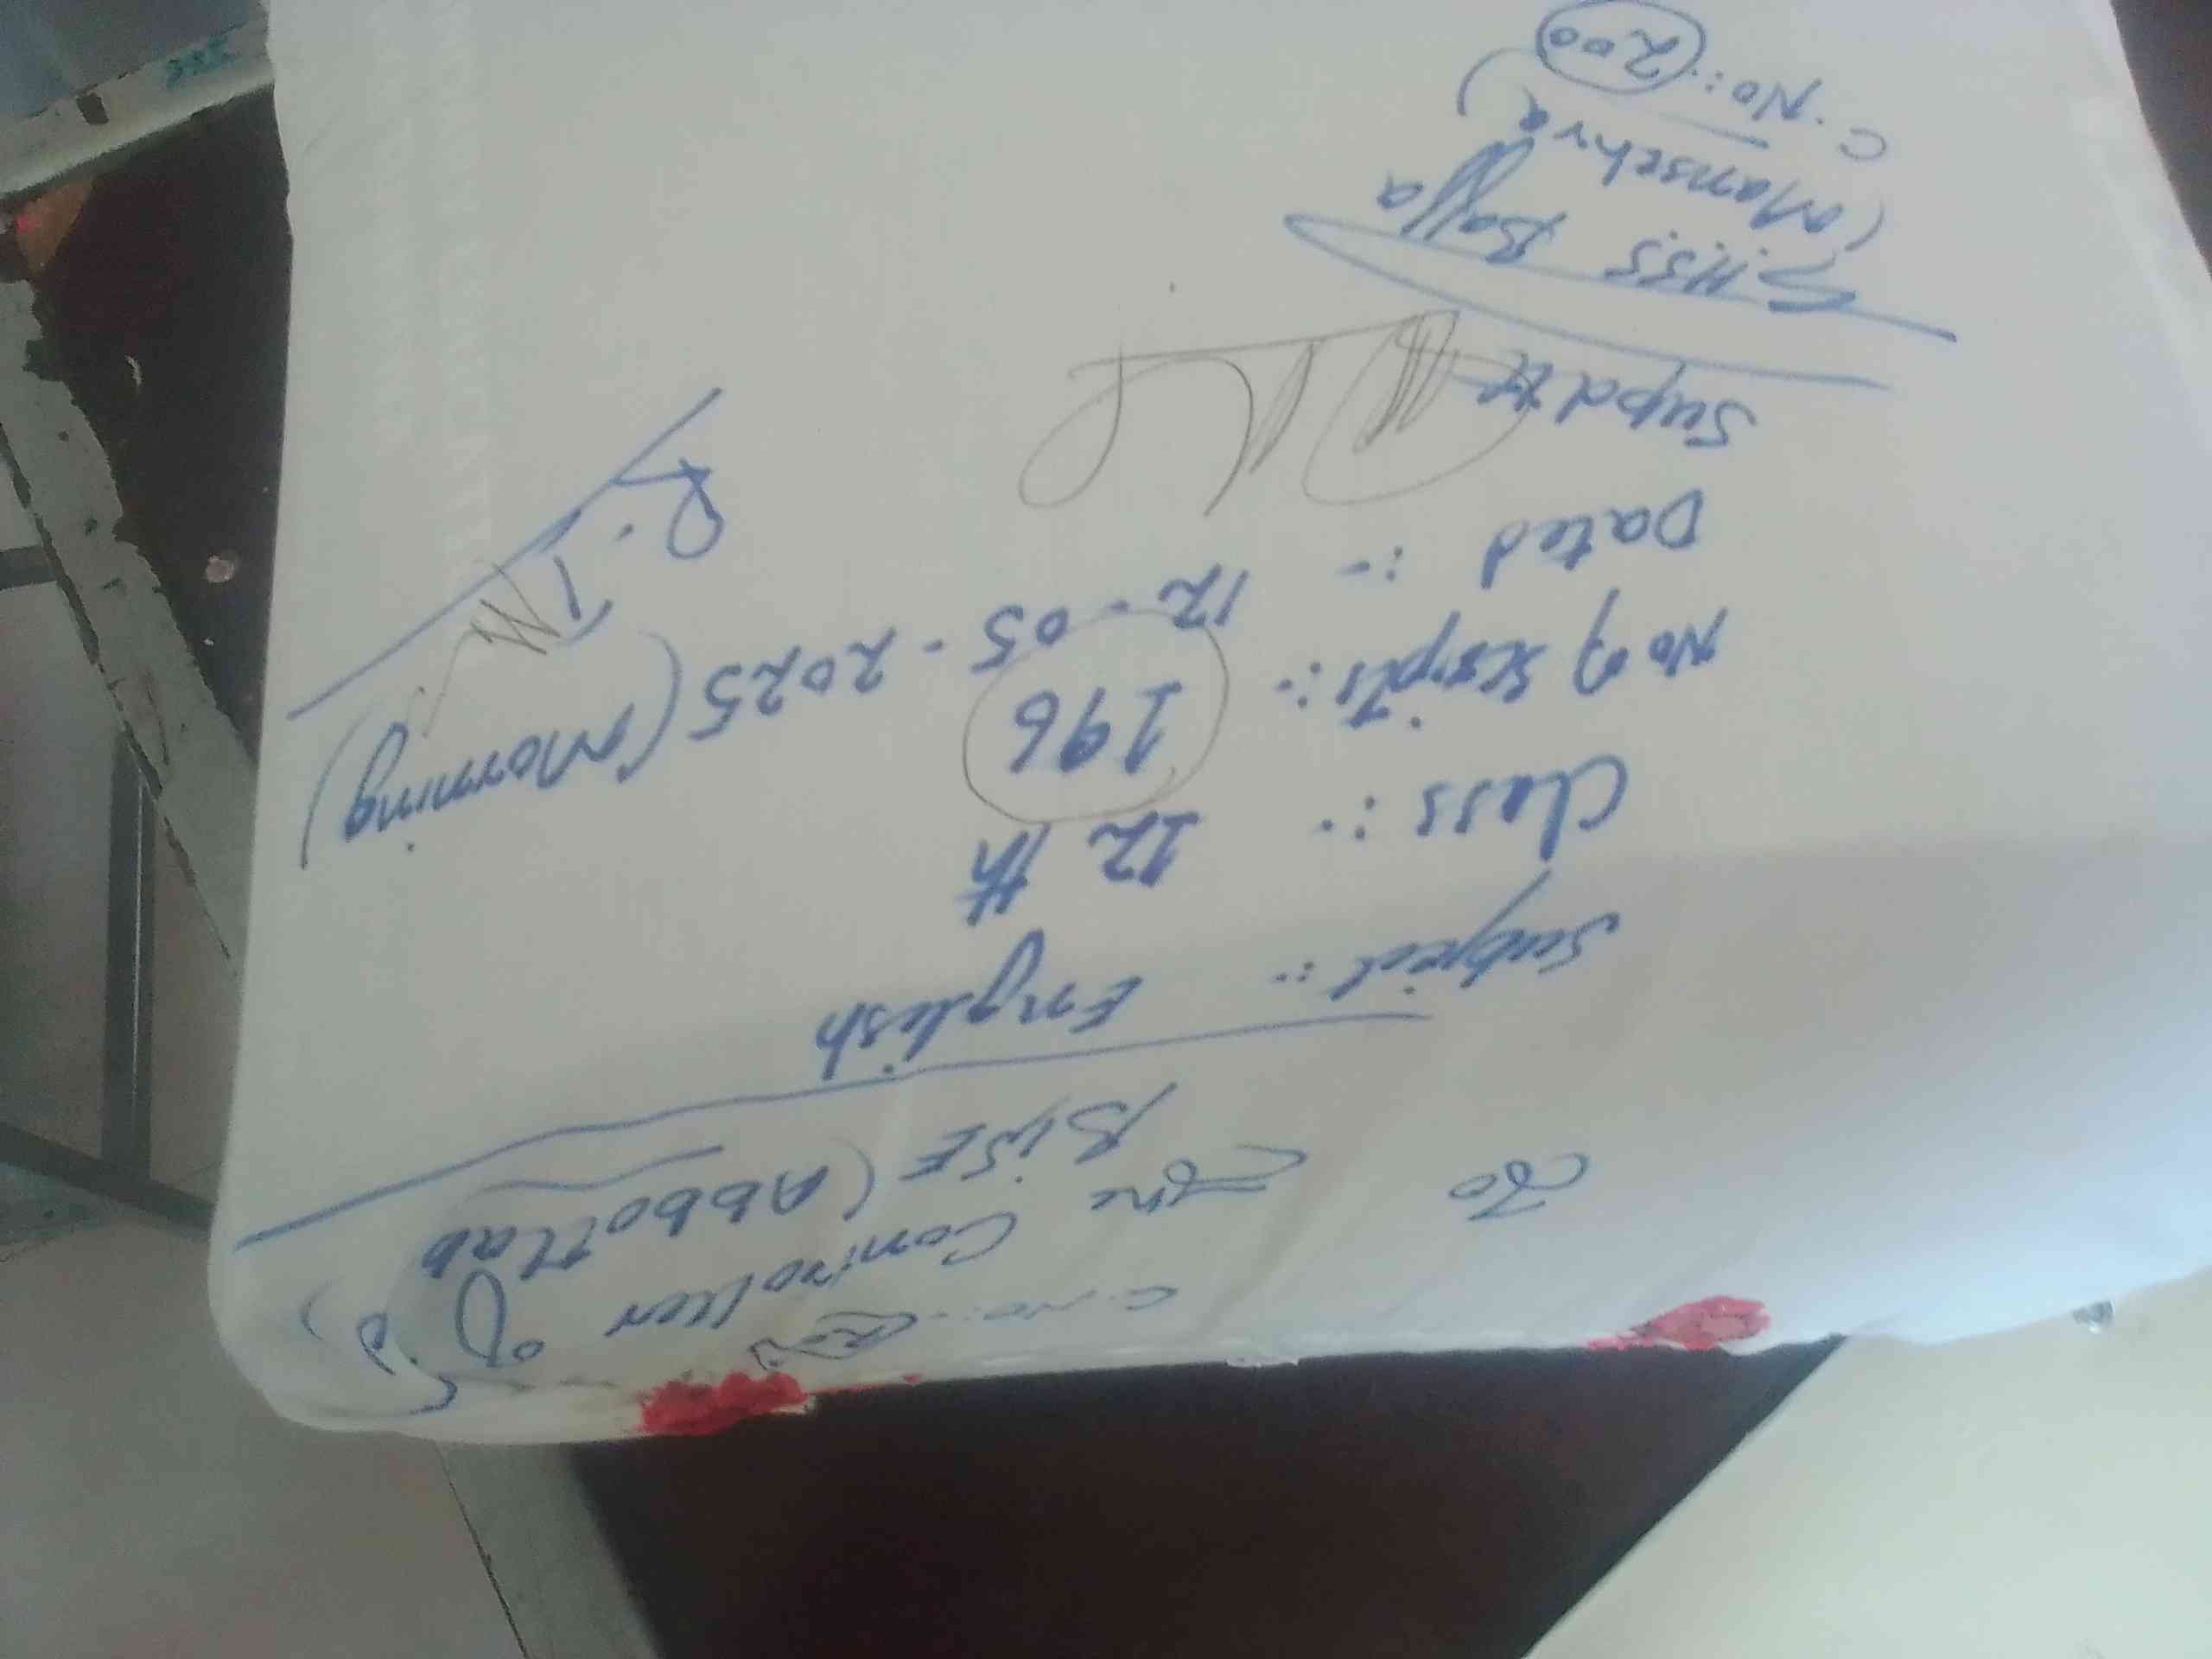 C.No:-
To
The Controller of
BISE (Abbottabad)
Subject :- English
Class :- 12 th
No of scripts :- 196
Dated :- 12-05-2025 (Morning)
Supdtt
G.H.S.S Baffa
(Mansehra)
C.No:- 200